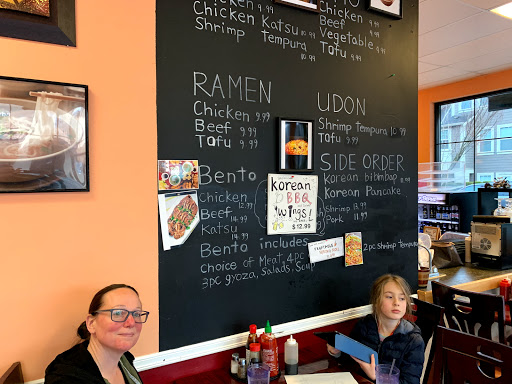 Chicken
Chicken Katsu 10.99
Shrimp Tempura
Chicken
Beef
Vegetable
Tofu 9.99
RAMEN
Chicken 9.99
Beef 9.99
Tofu 9.99
UDON
Shrimp Tempura 10.99
Tofu 9.99
SIDE ORDER
Korean bibimbap
Korean Pancake
Shrimp 13.99
Pork 11.99
Bento
Chicken
12.99
Beef 14.99
Katsu
14.99
Bento includes
choice of Meat, 4pc
3pc gyoza, Salads, Soup
2pc Shrimp Tempura
Korean
BBQ
Wings!
$12.99